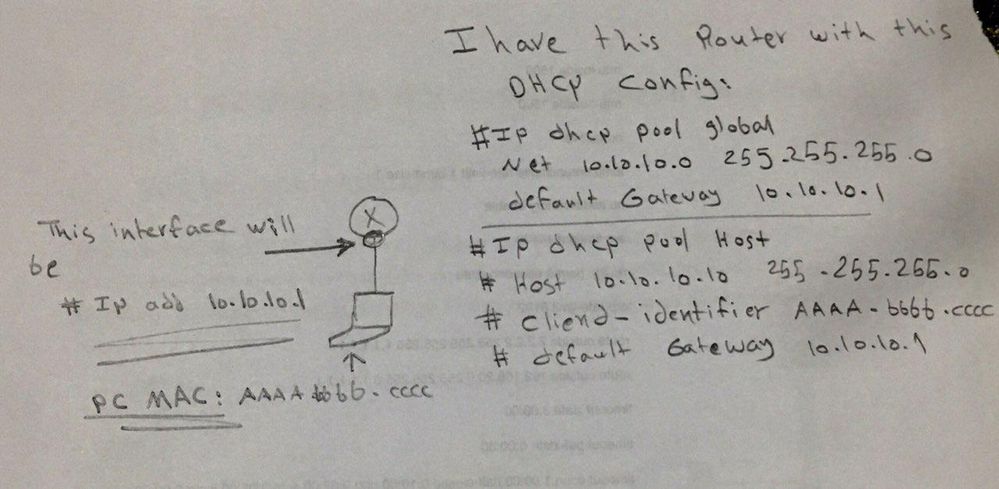 I have this Router with this
DHCP config:
#Ip dhcp pool global
Net 10.10.10.0 255.255.255.0
default Gateway 10.10.10.1
#Ip dhcp pool Host
# Host 10.10.10.10 255.255.255.0
# cliend-identifier AAAA-bbbb.cccc
# default Gateway 10.10.10.1
This interface will
be
# Ip add 10.10.10.1
X
PC MAC: AAAA bbbb.cccc